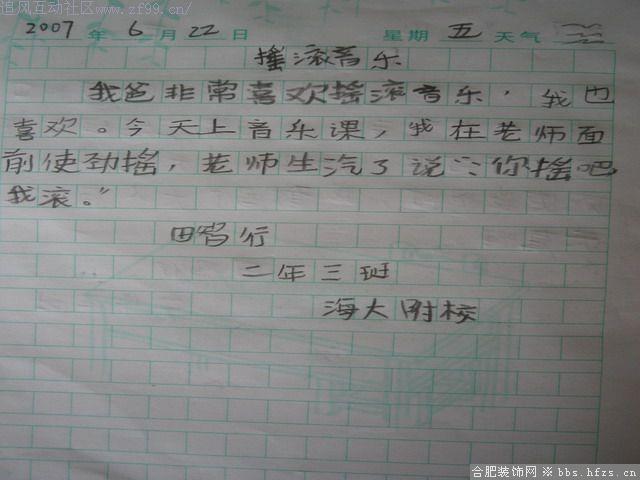 追风互动社区www.zf99.cn/
2007 年 6 月 22 日 星期 五 天气
摇滚音乐
我爸非常喜欢摇滚音乐，我也
喜欢。今天上音乐课，我在老师面
前使劲摇，老师生汽了说：“你摇吧
我滚。”
田智行
二年三班
海大附校
合肥装饰网※bbs.hfzs.cn